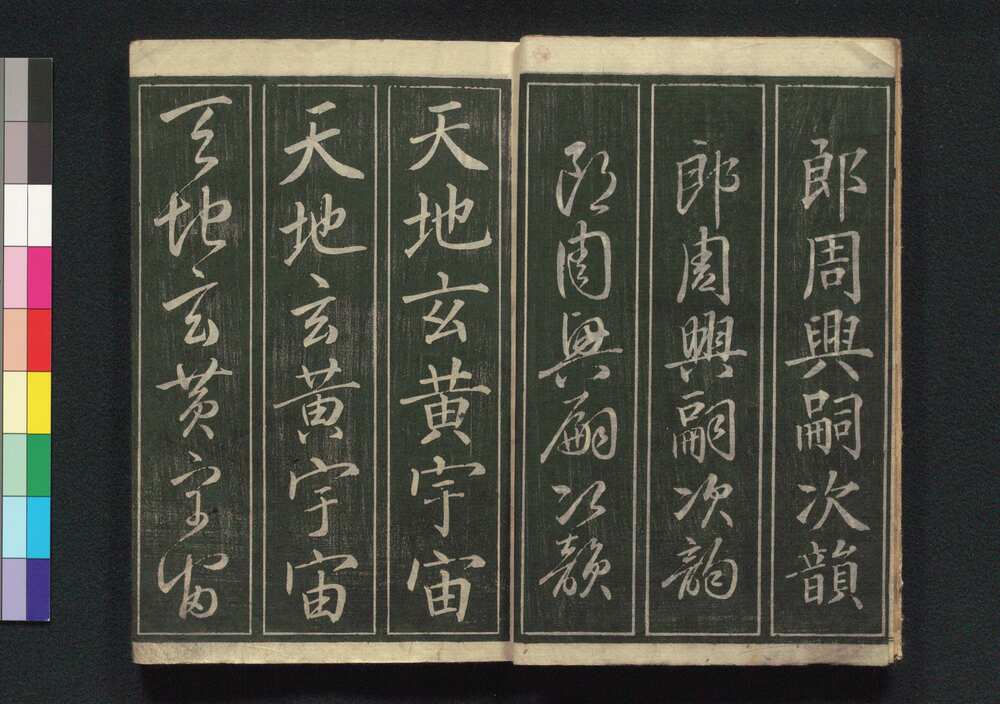 郎周興嗣次韻
郎周興嗣次韵
郎周興嗣次韻
天地玄黃宇宙
天地玄黃宇宙
天地玄黃宇宙